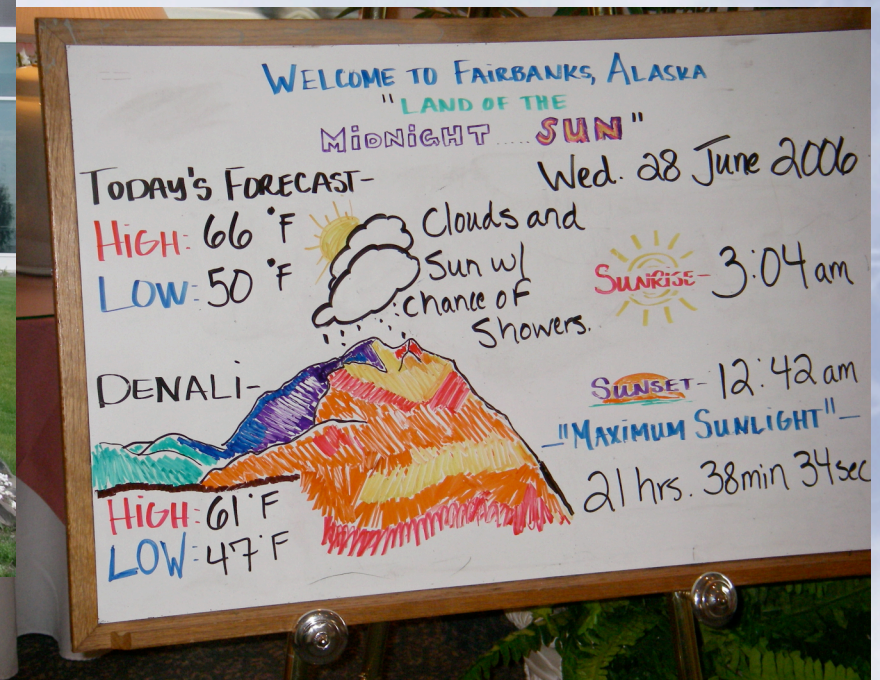 WELCOME TO FAIRBANKS, ALASKA
"LAND OF THE
MIDNIGHT.....SUN"
Wed. 28 June 2006
TODAY'S FORECAST-
HIGH: 66°F
LOW: 50°F
Clouds and
Sun w/
chance of
Showers.
SUNRISE- 3:04 am
SUNSET- 12:42 am
-"MAXIMUM SUNLIGHT"-
21 hrs. 38min 34sec
DENALI-
HIGH: 61°F
LOW: 47°F